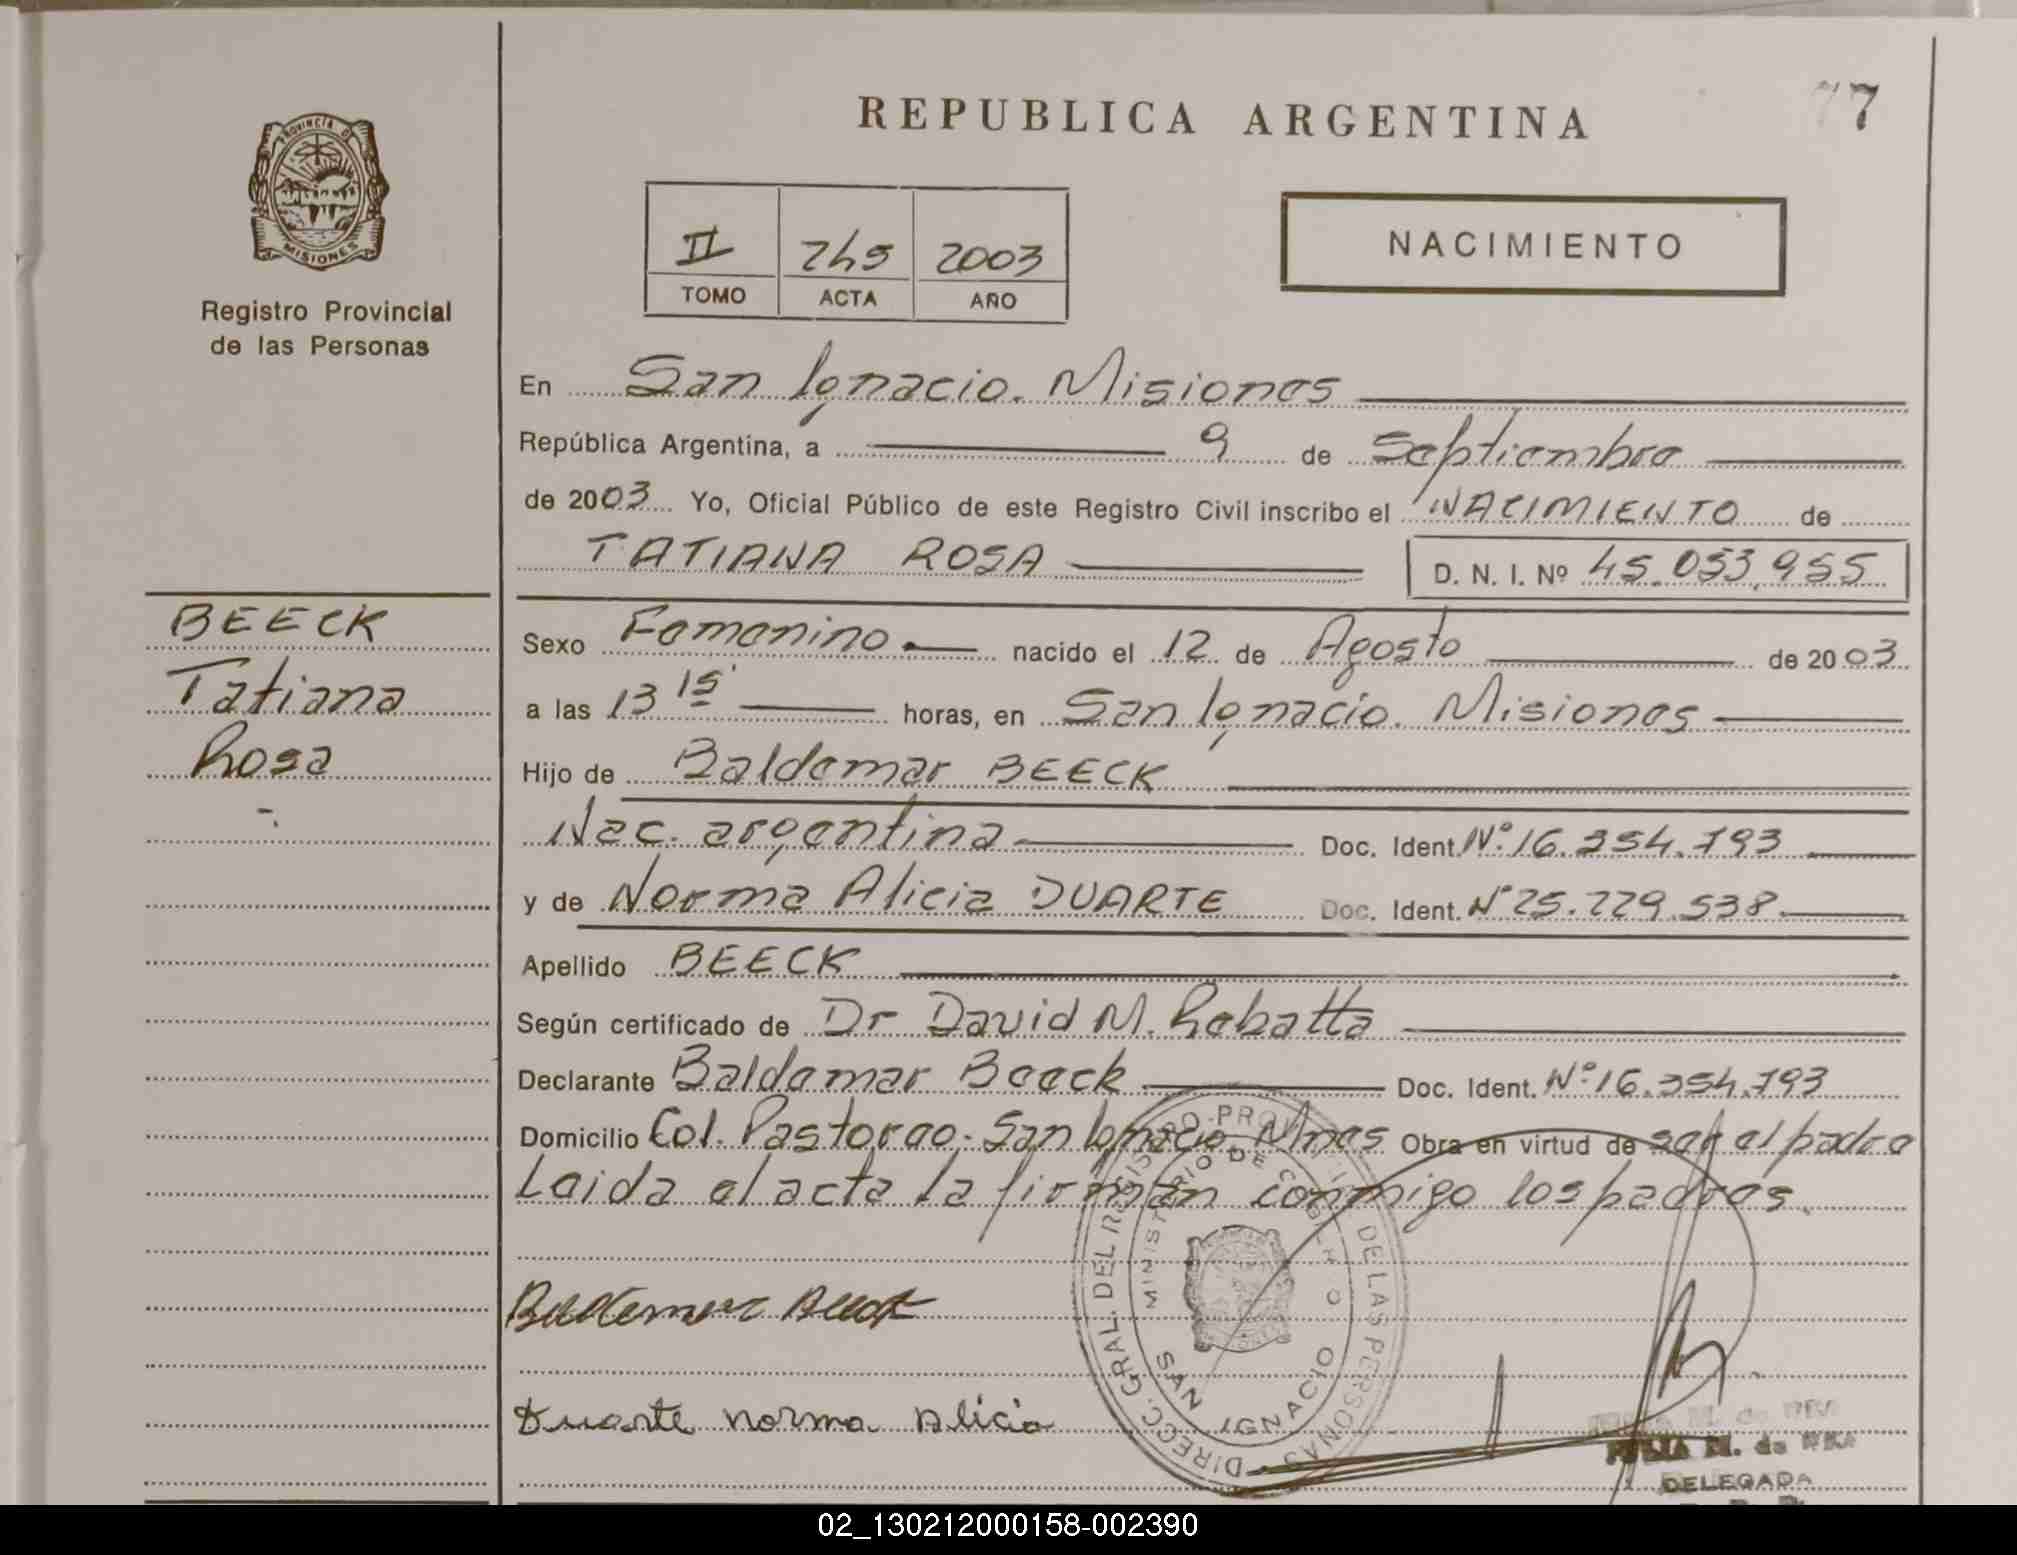 REPUBLICA ARGENTINA
77
PROVINCIA D
MISIONES
Registro Provincial
de las Personas
II 245 2003
TOMO ACTA AÑO
NACIMIENTO
En San Ignacio. Misiones
República Argentina, a 9 de Septiembre
de 2003 Yo, Oficial Público de este Registro Civil inscribo el NACIMIENTO de
TATIANA ROSA D. N. I. Nº 45.053.955
BEECK
Tatiana
Rosa
Sexo Femenino nacido el 12 de Agosto de 2003
a las 13 15 horas, en San Ignacio. Misiones
Hijo de Baldemar BEECK
Nac. argentina Doc. Ident. Nº 16.354.793
y de Norma Alicia DUARTE Doc. Ident. Nº 25.229.538
Apellido BEECK
Según certificado de Dr David M. Rebatta
Declarante Baldemar Beeck Doc. Ident. Nº 16.354.793
Domicilio Col. Pastoreo. San Ignacio Mnes Obra en virtud de ser el padre
Leida el acta la firman conmigo los padres.
Baldemar Beeck
Duarte Norma Alicia
DIRECC. GRAL. DEL REGISTRO PROVINCIAL DE LAS PERSONAS
MINISTERIO DE GOBIERNO
SAN IGNACIO
M. de
DELEGADA
02_130212000158-002390